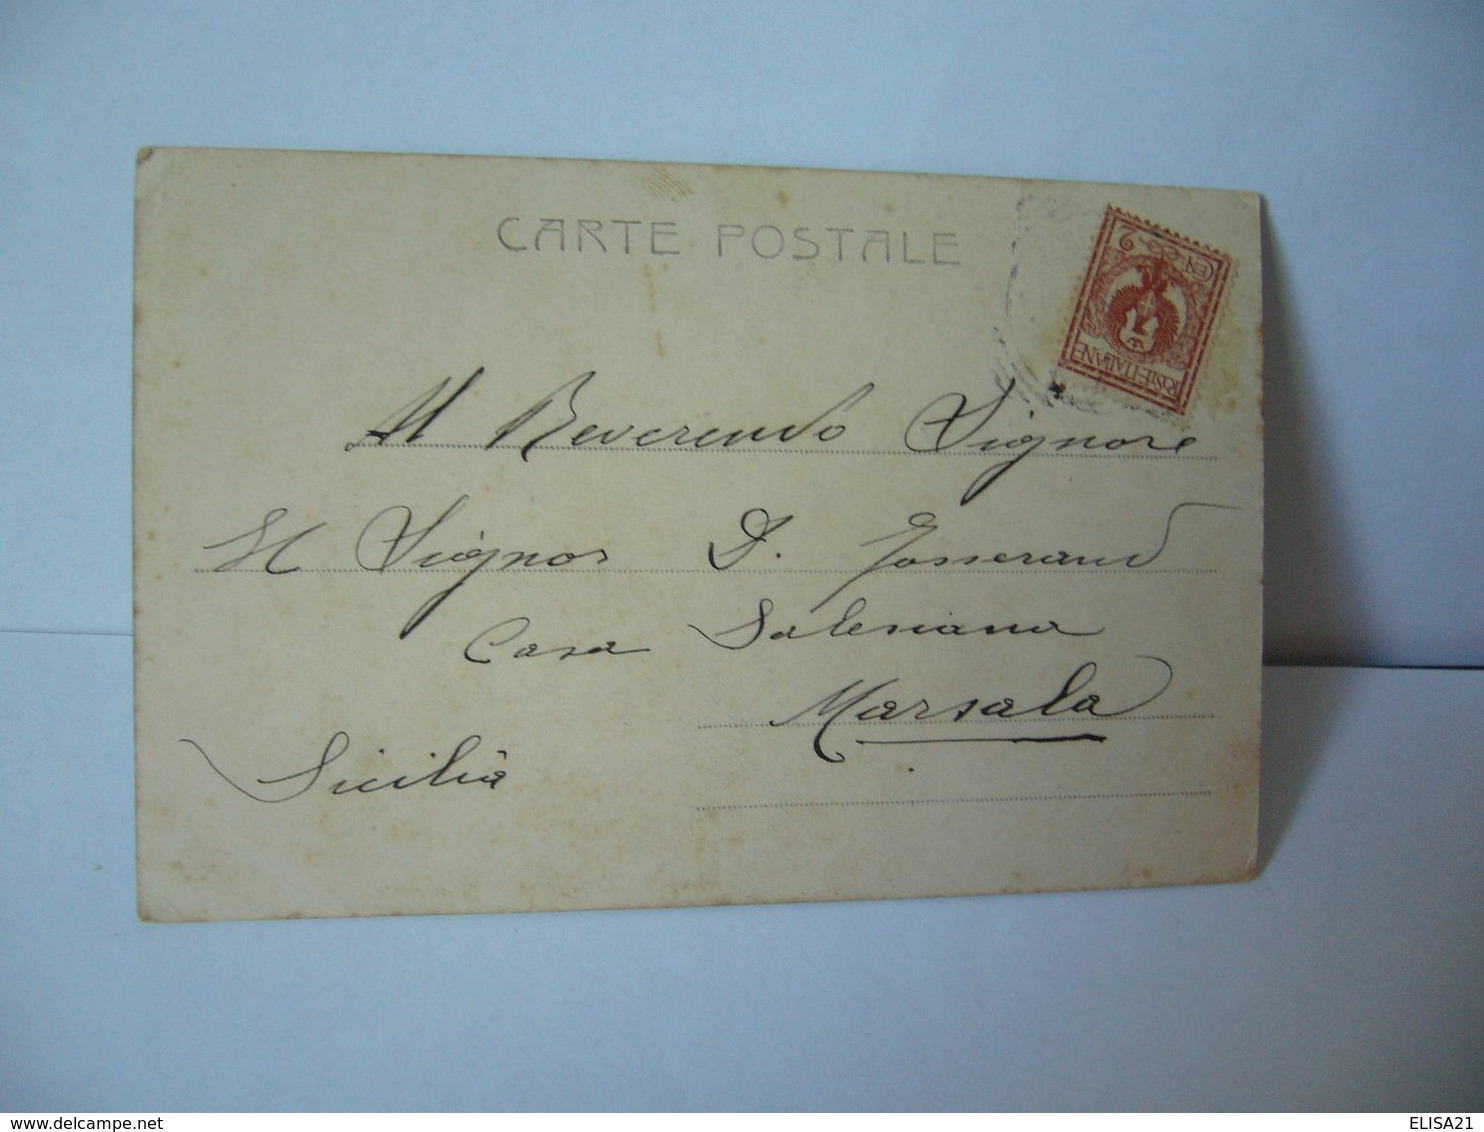 CARTE POSTALE
POSTE·ITALIANE
CEN. 2
Al Reverendo Signore
Il Signor D. Josserand
Casa Salesiana
Marsala
Sicilia
delcampe.net
ELISA21